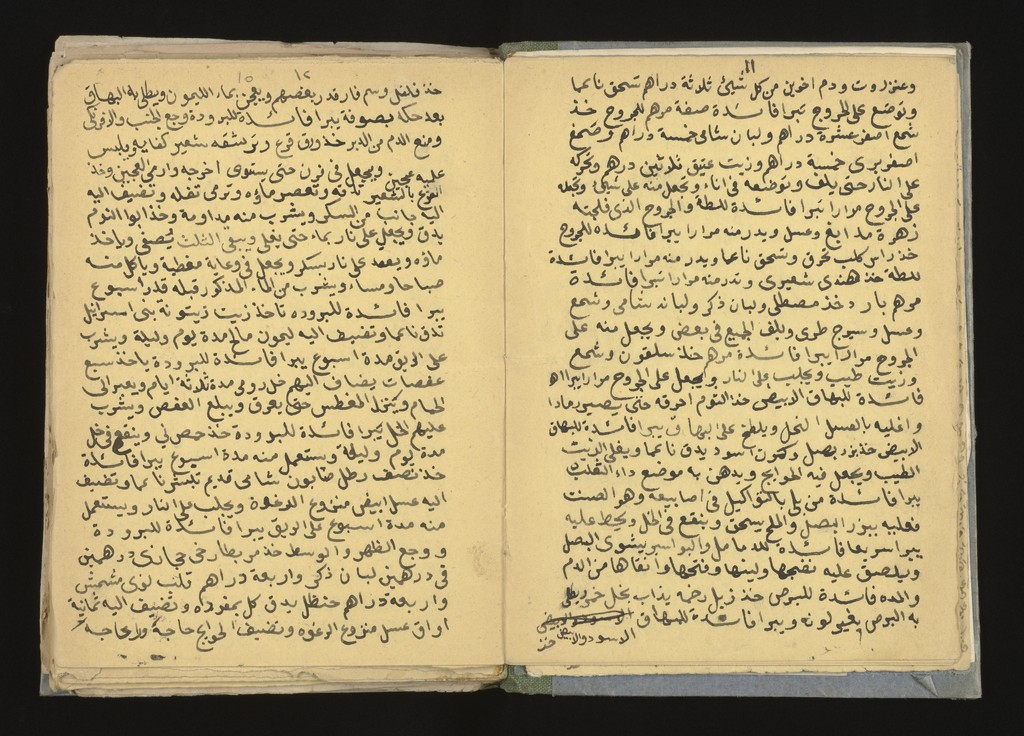 ١١
وعنزروت ودم اخوين من كل شيئ ثلاثة دراهم تسحق ناعما
وتوضع على الجروح تبرا فائدة صفة مرهم للجروح خذ
شمع اصفر عشرة دراهم ولبان شامي خمسة دراهم وصمغ
اصفر بري خمسة دراهم وزيت عتيق ثلاثين درهم وتحركه
على النار حتى يلف وتوضعه في اناء وتجعل منه على شيئ وتجعله
على الجروح مرارا تبرا فائدة للسطة والجروح الذي فلجته
زهرة مدابغ وعسل ويدر منه مرارا يبرا فائدة للجروح
خذ راس كلب تحرق وتسحق ناعما ويدر منه مرارا يبرا فائدة
للسطه خذ هندي شعيري وتدر منه مرارا تبرا فائدة
مرهم بارد خذ مصطكى ولبان ذكر ولبانه شامي وشمع
وعسل وسيرج طري ويلف الجميع في بعض ويجعل منه على
الجروح مرارا يبرا فائدة مرهم خذ سلقون وشمع
وزيت طيب ويجلب على النار ويجعل على الجروح مرارا يبرا اه
فائدة للبهاق الابيض خذ الثوم احرقه حتى يصير رمادا
واغليه بالعسل النحل ويلطخ على البهاق يبرا فائدة للبهاق
الابيض خذ بزر بصل وكمون اسود يدق ناعما ويغلى الزيت
الطيب ويجعل فيه الحوايج ويدهن به موضع داء الثعلب
يبرا فائدة من بلي بالثواكيل في اصابيعه وهو الصنت
فعليه ببزر البصل والملح يسحق وينقع في الخل ويحط عليه
يبرا سريعا فائدة للدمامل والبواسير يشوى البصل
ويلصق عليه نضجها ولينها وفتحها وانقاها من الدم
والمده فائدة للبرص خذ زبل رخمه يذاب بخل خمر ويطلى
به البرص يغير لونه ويبرا فائدة للبهاق
الاسود والابيض خذ
١٢
١٥
خذ فلفل وسم فار قدر بعضهم ويعجن بماء الليمون ويطلى به البهاق
بعد حكه بصوفة يبرا فائدة للبرودة وجع الجنب والافرنجي
ومنع الدم من الدبر خذ ورق قرع ورتشقه شعير كفايه ويلبس
عليه عجين ويجعل في فرن حتى يستوي اخرجه وارمي العجين وخذ
القرع بالشعير تدقه وتعصر ماؤه وترمى تفله وتضيف اليه
اليه جانب من السكر ويشرب منه مداومة وخذ ابوا النوم
يدق ويجعل على نار بماء حتى يغلي ويبقى الثلث يصفى وياخذ
ماؤه ويعقد على نار بسكر ويجعل في وعاية مغطية وياكل منه
صباحا ومساء ويشرب من الماء المذكور قبله قدر اسبوع
يبرا فائدة للبروده تاخذ زيت زيتونة بني اسرائيل
تدق ناعما وتضيف اليه ليمون مالح مدة يوم وليلة ويشرب
على الريق مدة اسبوع يبرا فائدة للبرودة ياخذ سبع
عفصات يضاف اليهم خل رومي مدة ثلاثة ايام ويعبر الى
الحمام وينزل المغطس حتى يعرق ويبلع العفص ويشرب
عليهم الخل يبرا فائدة للبرودة خذ حصى لبي وينقع في خل
مدة يوم وليلة ويستعمل منه مدة اسبوع يبرا فائدة
خذ نصف رطل صابون شامي قديم تبشر ناعما وتضيف
اليه عسل ابيض منزوع الرغوة ويجلب على النار ويستعمل
منه مدة اسبوع على الريق يبرا فائدة للبرودة
ووجع الظهر والوسط خذ مر بطارخي حجازي درهمين
في درهمين لبان ذكر واربعة دراهم قلب لوزي مشمش
واربعة دراهم حنظل يدق كل بمفرده وتضيف اليه ثمانية
اواق عسل منزوع الرغوه وتضيف الحوايج حاجة وراء حاجة